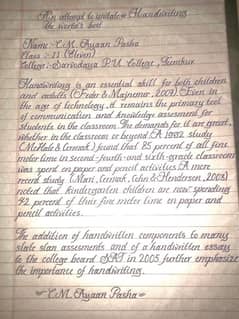 An attempt to imitate Handwriting
the world's best
Name:- C.M. Ayaan Pasha
Class :- 11 (Eleven)
College:- Sarvodaya P.U College, Tumkur
Handwriting is an essential skill for both children
and adults (Feder & Majnemer, 2007). Even in
the age of technology, it remains the primary tool
of communication and knowledge assesment for
students in the classroom. The demands for it are great,
whether in the classroom or beyond. A 1992 study
(McHale & Cermak) found that 85 percent of all fine
motor time in second-fourth-and sixth-grade classrooms
was spent on paper and pencil activities. A more
recent study (Marr, Cermak, Cohn & Henderson, 2003)
noted that kindergarten children are now spending
42 percent of their fine motor time on paper and
pencil activities.
The addition of handwritten components to many
state assesments and of a handwritten essay
to the college board SAT in 2005 further emphasize
the importance of handwriting.
C.M. Ayaan Pasha